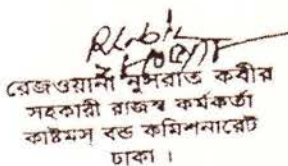 রেজওয়ানা নুসরাত কবীর
সহকারী রাজস্ব কর্মকর্তা
কাষ্টমস বন্ড কমিশনারেট
ঢাকা ।